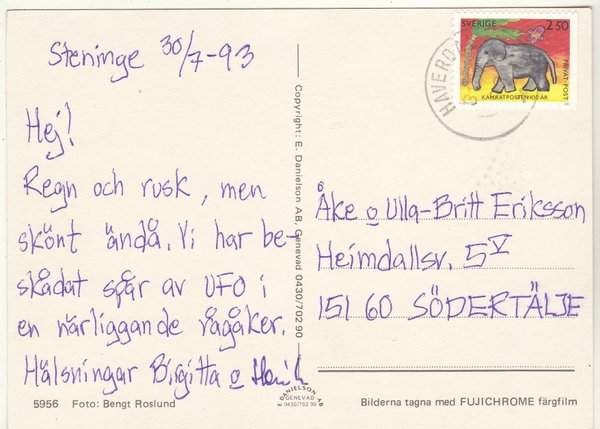 Steninge 30/7-93
Hej!
Regn och rusk, men
skönt ändå. Vi har be-
skådat spår av UFO i
en närliggande rågåker.
Hälsningar Birgitta o
5956 Foto: Bengt Roslund
Copyright: E. Danielson AB, Genevad 0430/702 90
DANIELSON AB
GENEVAD
0430/702 90
SVERIGE 2 50
PRIVAT-POST
KAMRATPOSTEN 100 ÅR
Åke o Ulla-Britt Eriksson
Heimdallsv. 5 V
151 60 SÖDERTÄLJE
Bilderna tagna med FUJICHROME färgfilm